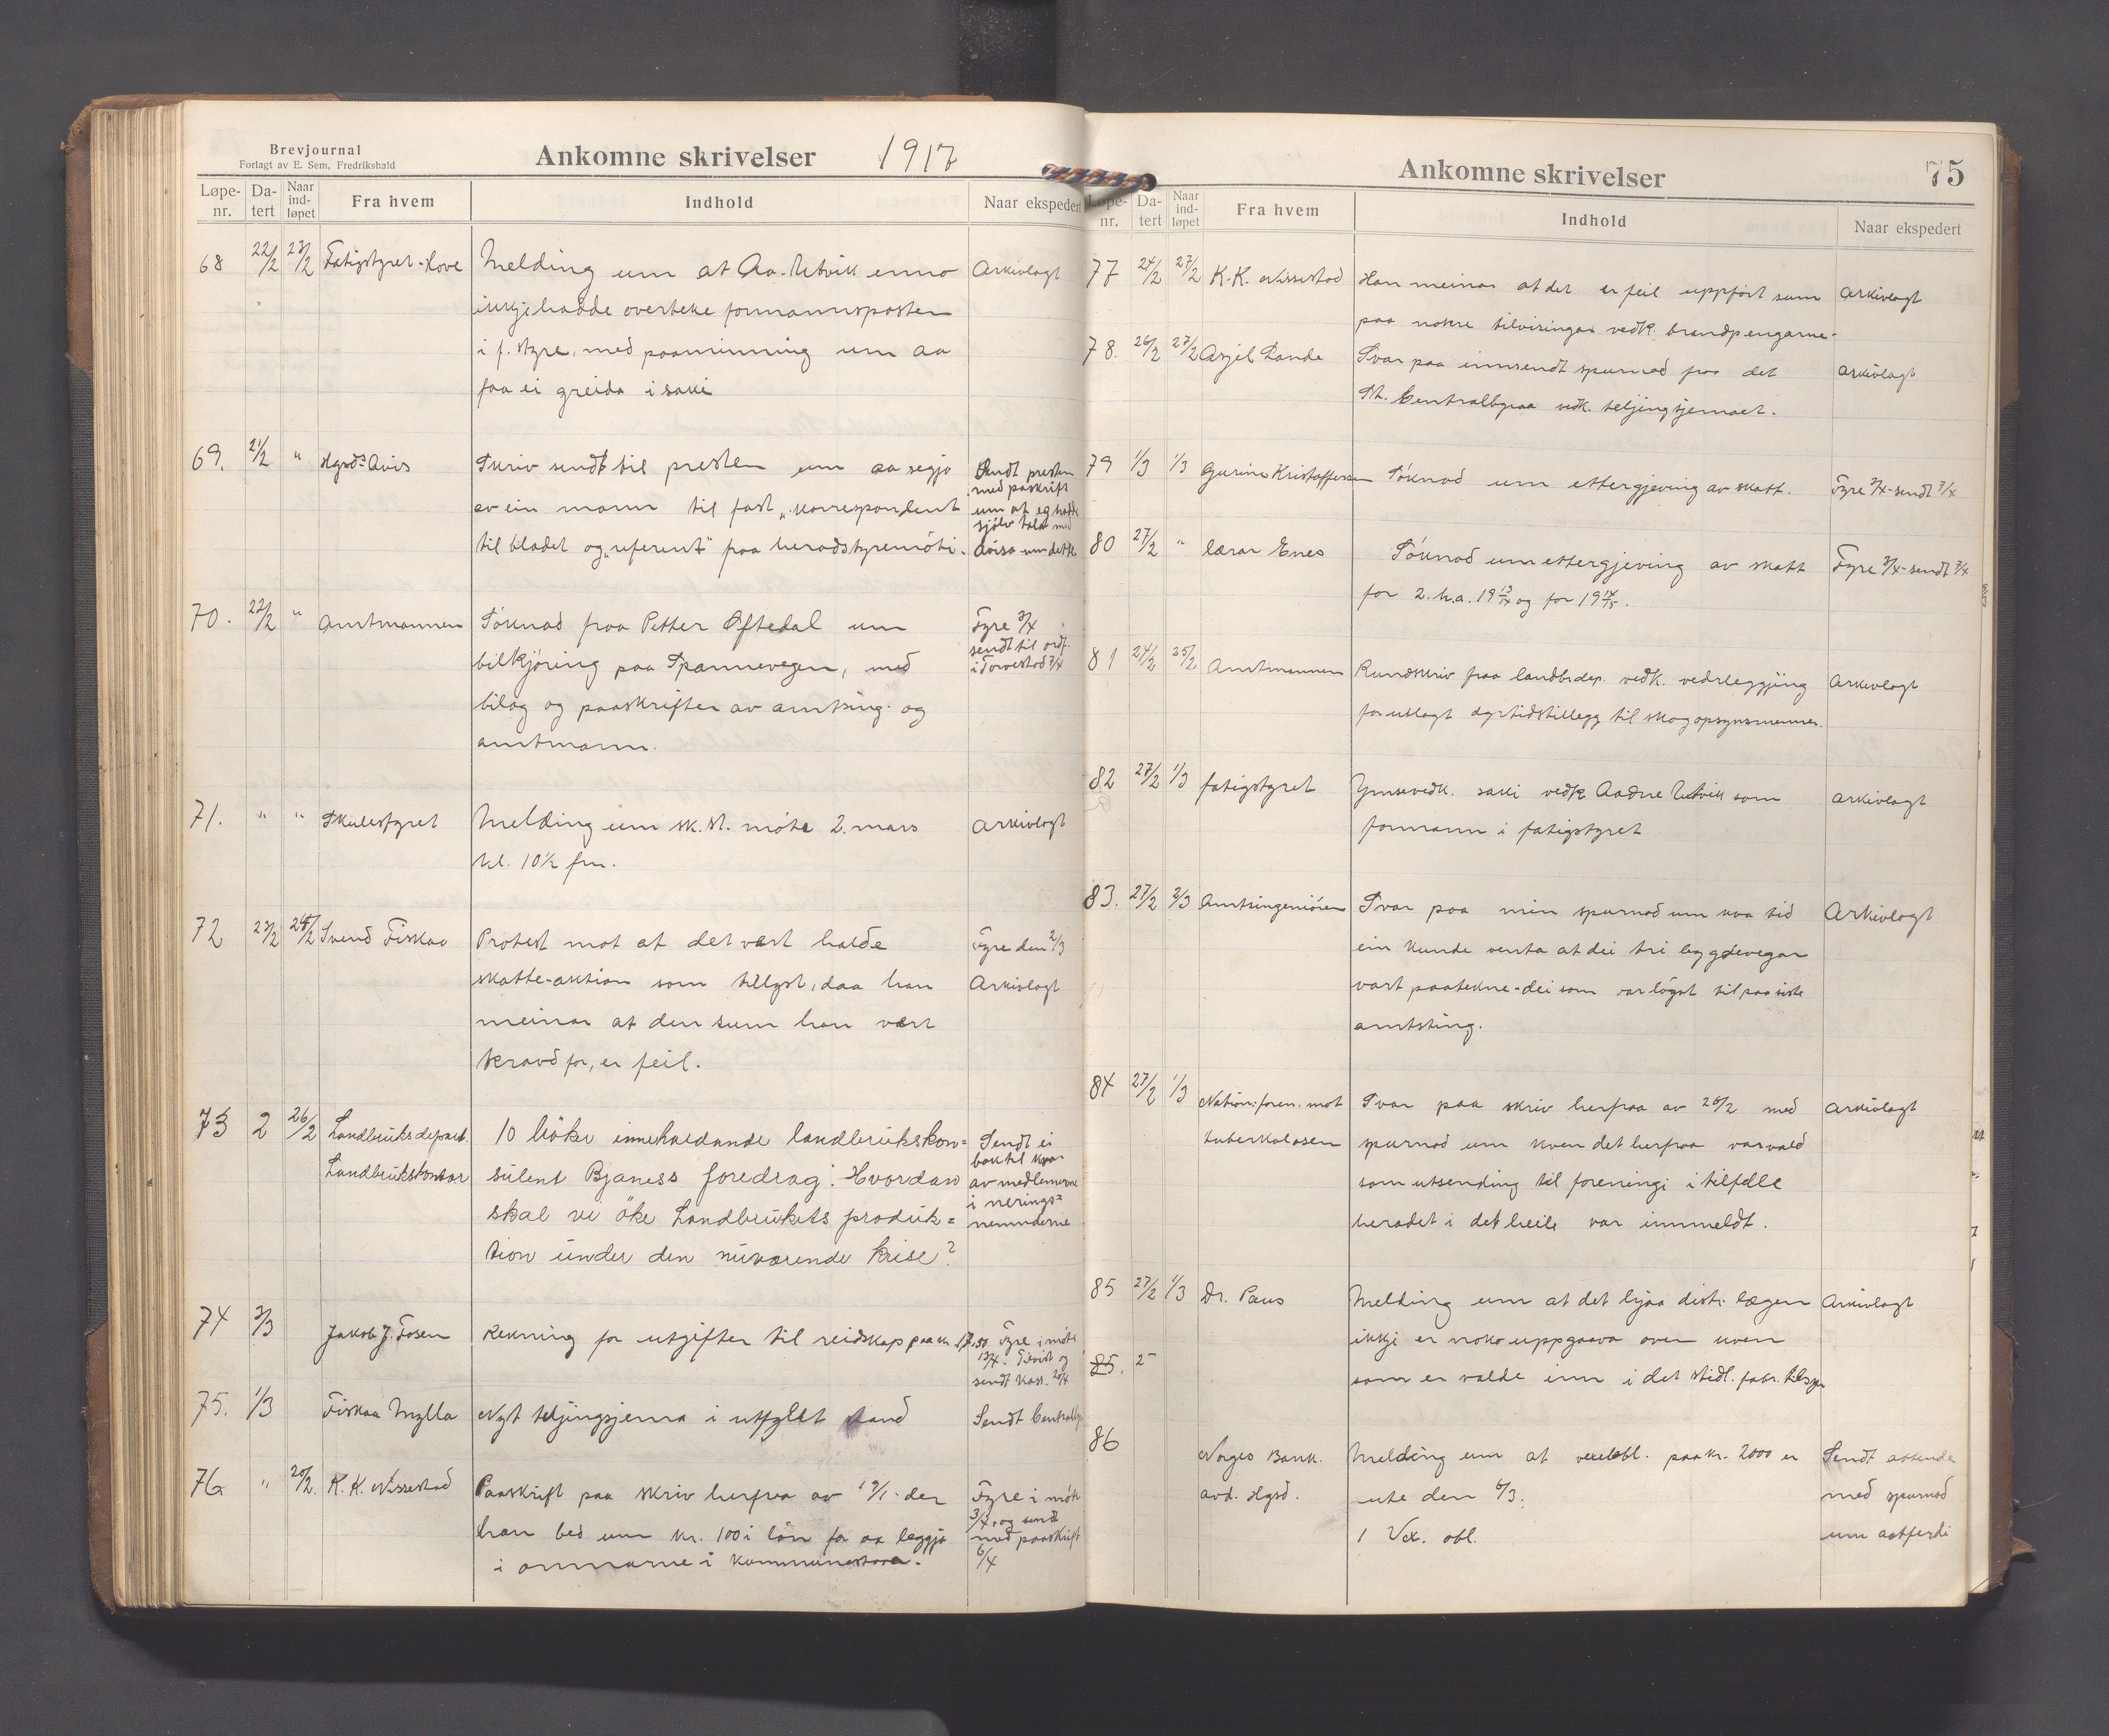 Brevjournal
Forlagt av E. Sem, Fredrikshald
Ankomne skrivelser 1917
Løpe-nr. Da-tert Naar ind-løpet Fra hvem Indhold Naar ekspedert
68 22/2 23/2 Fatigstyret - Hove Melding um at Aa. Utvik enno Arkivlagt
ikkje hadde overteke formannsposten
i f. styre, med paaminning um aa
faa ei greida i saki
69. 21/2 " Hgsds Avis Skriv sendt til presten um aa segja Sendt presten
med paskrift
av ein mann til fast „korrespondent um at eg hadde
sjølv tala med
til bladet og „referent" fraa heradstyremöti. Avisa um dette
70. 22/2 " Amtmannen Söknad fraa Petter Øftedal um Fyre 3/4
sendt til ordf.
bilkjöring paa Spannevegen, med i Torvestad 7/4
bilag og paaskrifter av amtsing. og
amtmann.
71. " " Skulestyret Melding um sk. st. möte 2. mars Arkivlagt
kl. 10½ fm.
72 23/2 24/2 Svend Fiskaa Protest mot at det vært halde Fyre den 2/3
skatte-auktion som tillyst, daa han Arkivlagt
meinar at den sum han vært
kravd for, er feil.
73 2 26/2 Landbruksdepart. 10 böker inneholdande landbrukskon= Sendt ei
bok til kvar
Landbrukskontor sulent Bjaness foredrag: Hvordan av medlemmene
i nerings=
skal vi öke Landbrukets produk= nemnderne
tion under den nuværende krise?
74 3/3 Jakob J. Fosen Rekning for utgifter til reidskap paa kr. 17,50 Fyre i möte
13/4. Tilvist og
sendt kass. 20/4
75. 1/3 Fiskaa Mylla Nyt teljingsjema i utfyllt stand Sendt Centralby.
76 " 20/2. K. K. Nissestad Paaskrift paa skriv herfraa av 19/1. der Fyre i möte
3/4. og sendt
han bed um kr. 100 i lön for aa leggja med paaskrift
6/4
i omnarne i kommunestova.
Ankomne skrivelser 75
Løpe-nr. Da-tert Naar ind-løpet Fra hvem Indhold Naar ekspedert
77 24/2 27/2 K. K. Nissestad Han meinar at det er feil uppfört sum Arkivlagt
paa nokre tilvisingar vedk. brandpengarne.
78. 26/2 27/2 Asjel Lande Svar paa innsendt spurnad fraa det Arkivlagt
St. Centralbyraa vedk. teljingsjemaet.
79 1/3 1/3 Gurine Kristoffersen Söknad um ettergjeving av skatt. Fyre 3/4 - sendt 7/4
80 27/2 " lærar Enes Söknad um ettergjeving av skatt Fyre 3/4 - sendt 7/4
for 2. h.a. 19 13/14 og for 19 14/15.
81 24/2 25/2 Amtmannen Rundskriv fraa landbr.dep. vedk. vedrleggjing Arkivlagt
for utlagt dyrtidstillegg til skogopsynsmenner.
82 27/2 1/3 fatigstyret Ymse vedk. saki vedk Aadne Utvik som Arkivlagt
formann i fatigstyret
83. 27/2 3/3 Amtsingeniören Svar paa min spurnad um kva tid Arkivlagt
ein kunde venta at dei tri bygdevegar
vart paatekne - dei som var lögst til paa siste
amtsting.
84 27/2 1/3 Nation: foren. mot Svar paa skriv herfraa av 26/2 med Arkivlagt
tuberkulosen spurnad um kven det herfraa var vald
som utsending til foreningi i tilfelle
heradet i det heile var innmeldt.
85 27/2 1/3 Dr. Paus Melding um at det hjaa distr. lægen Arkivlagt
ikkje er noko uppgaava over kven
85. 2 som er valde inn i det stedl. fabr. tilsyn
86 Norges Bank. Melding um at vexelobl. paa kr. 2000 er Sendt attende
avd. Hgsd. ute den 6/3. med spurnad
1 Vex. obl. um aatferdi